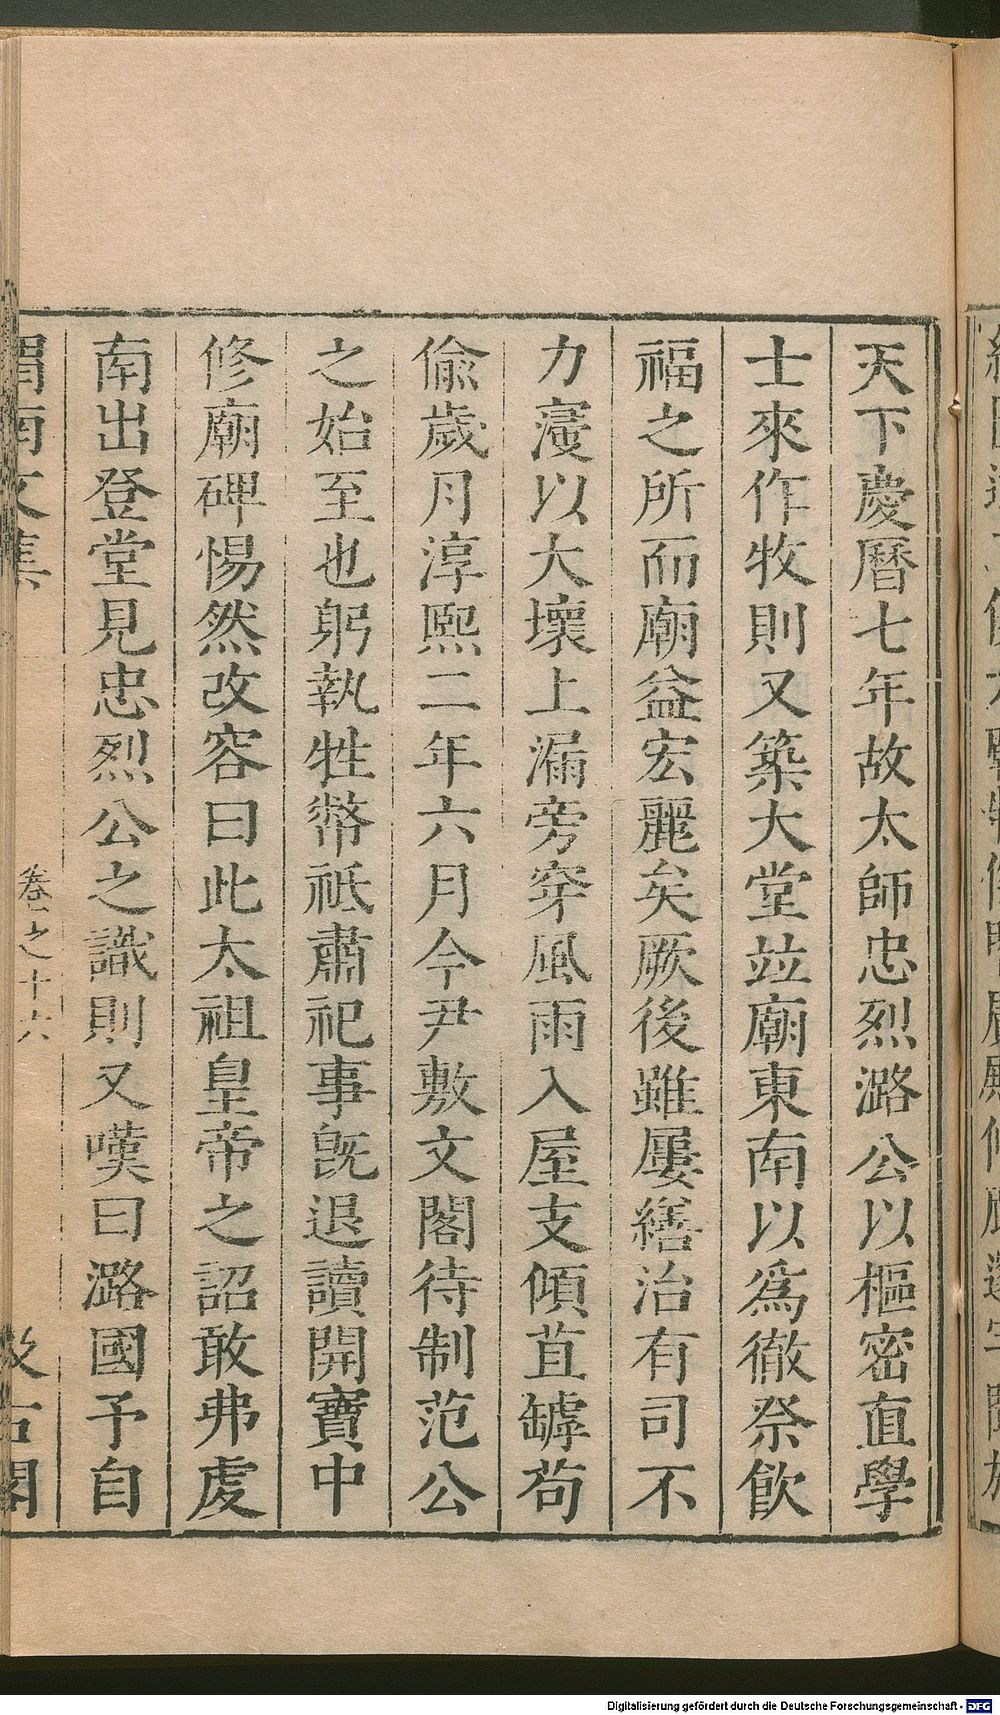 天下慶曆七年故太師忠烈潞公以樞密直學
士來作牧則又築大堂竝廟東南以爲徹祭飲
福之所而廟益宏麗矣厥後雖屢繕治有司不
力寖以大壞上漏旁穿風雨入屋支傾苴罅苟
偸歲月淳熙二年六月今尹敷文閣待制范公
之始至也躬執牲幣祗肅祀事旣退讀開寶中
修廟碑惕然改容曰此太祖皇帝之詔敢弗虔
南出登堂見忠烈公之識則又嘆曰潞國予自
渭南文集 卷之十六 汲古閣
Digitalisierung gefördert durch die Deutsche Forschungsgemeinschaft - DFG